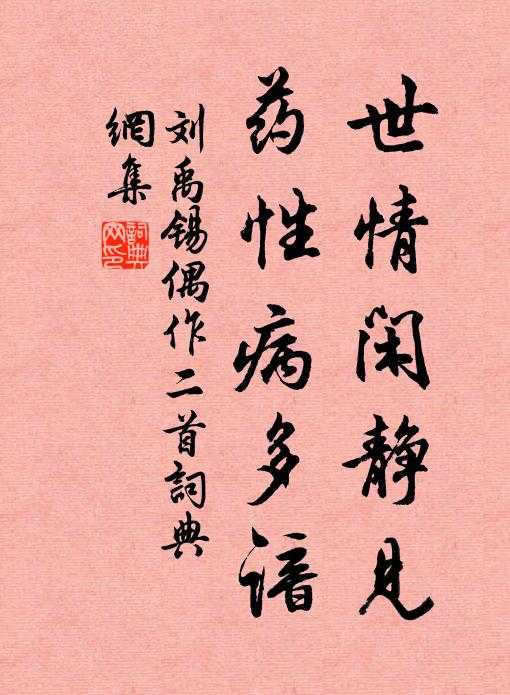 世情闲静见
药性病多谙
刘禹锡偶作二首詞典
網集
詞典
网印